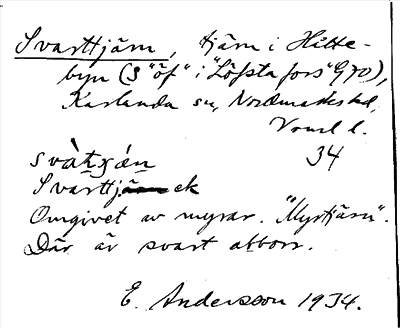 Svarttjärn, tjärn i Hitte-
byn (S "öf" i "Löfsta fors" G70),
Karlanda sn, Nordmarks hd,
Vrml l.
34
svàtχǽn
Svarttj ek
Omgivet av myrar. "Myrtjärn".
Där är svart abborr.
E. Andersson 1934.